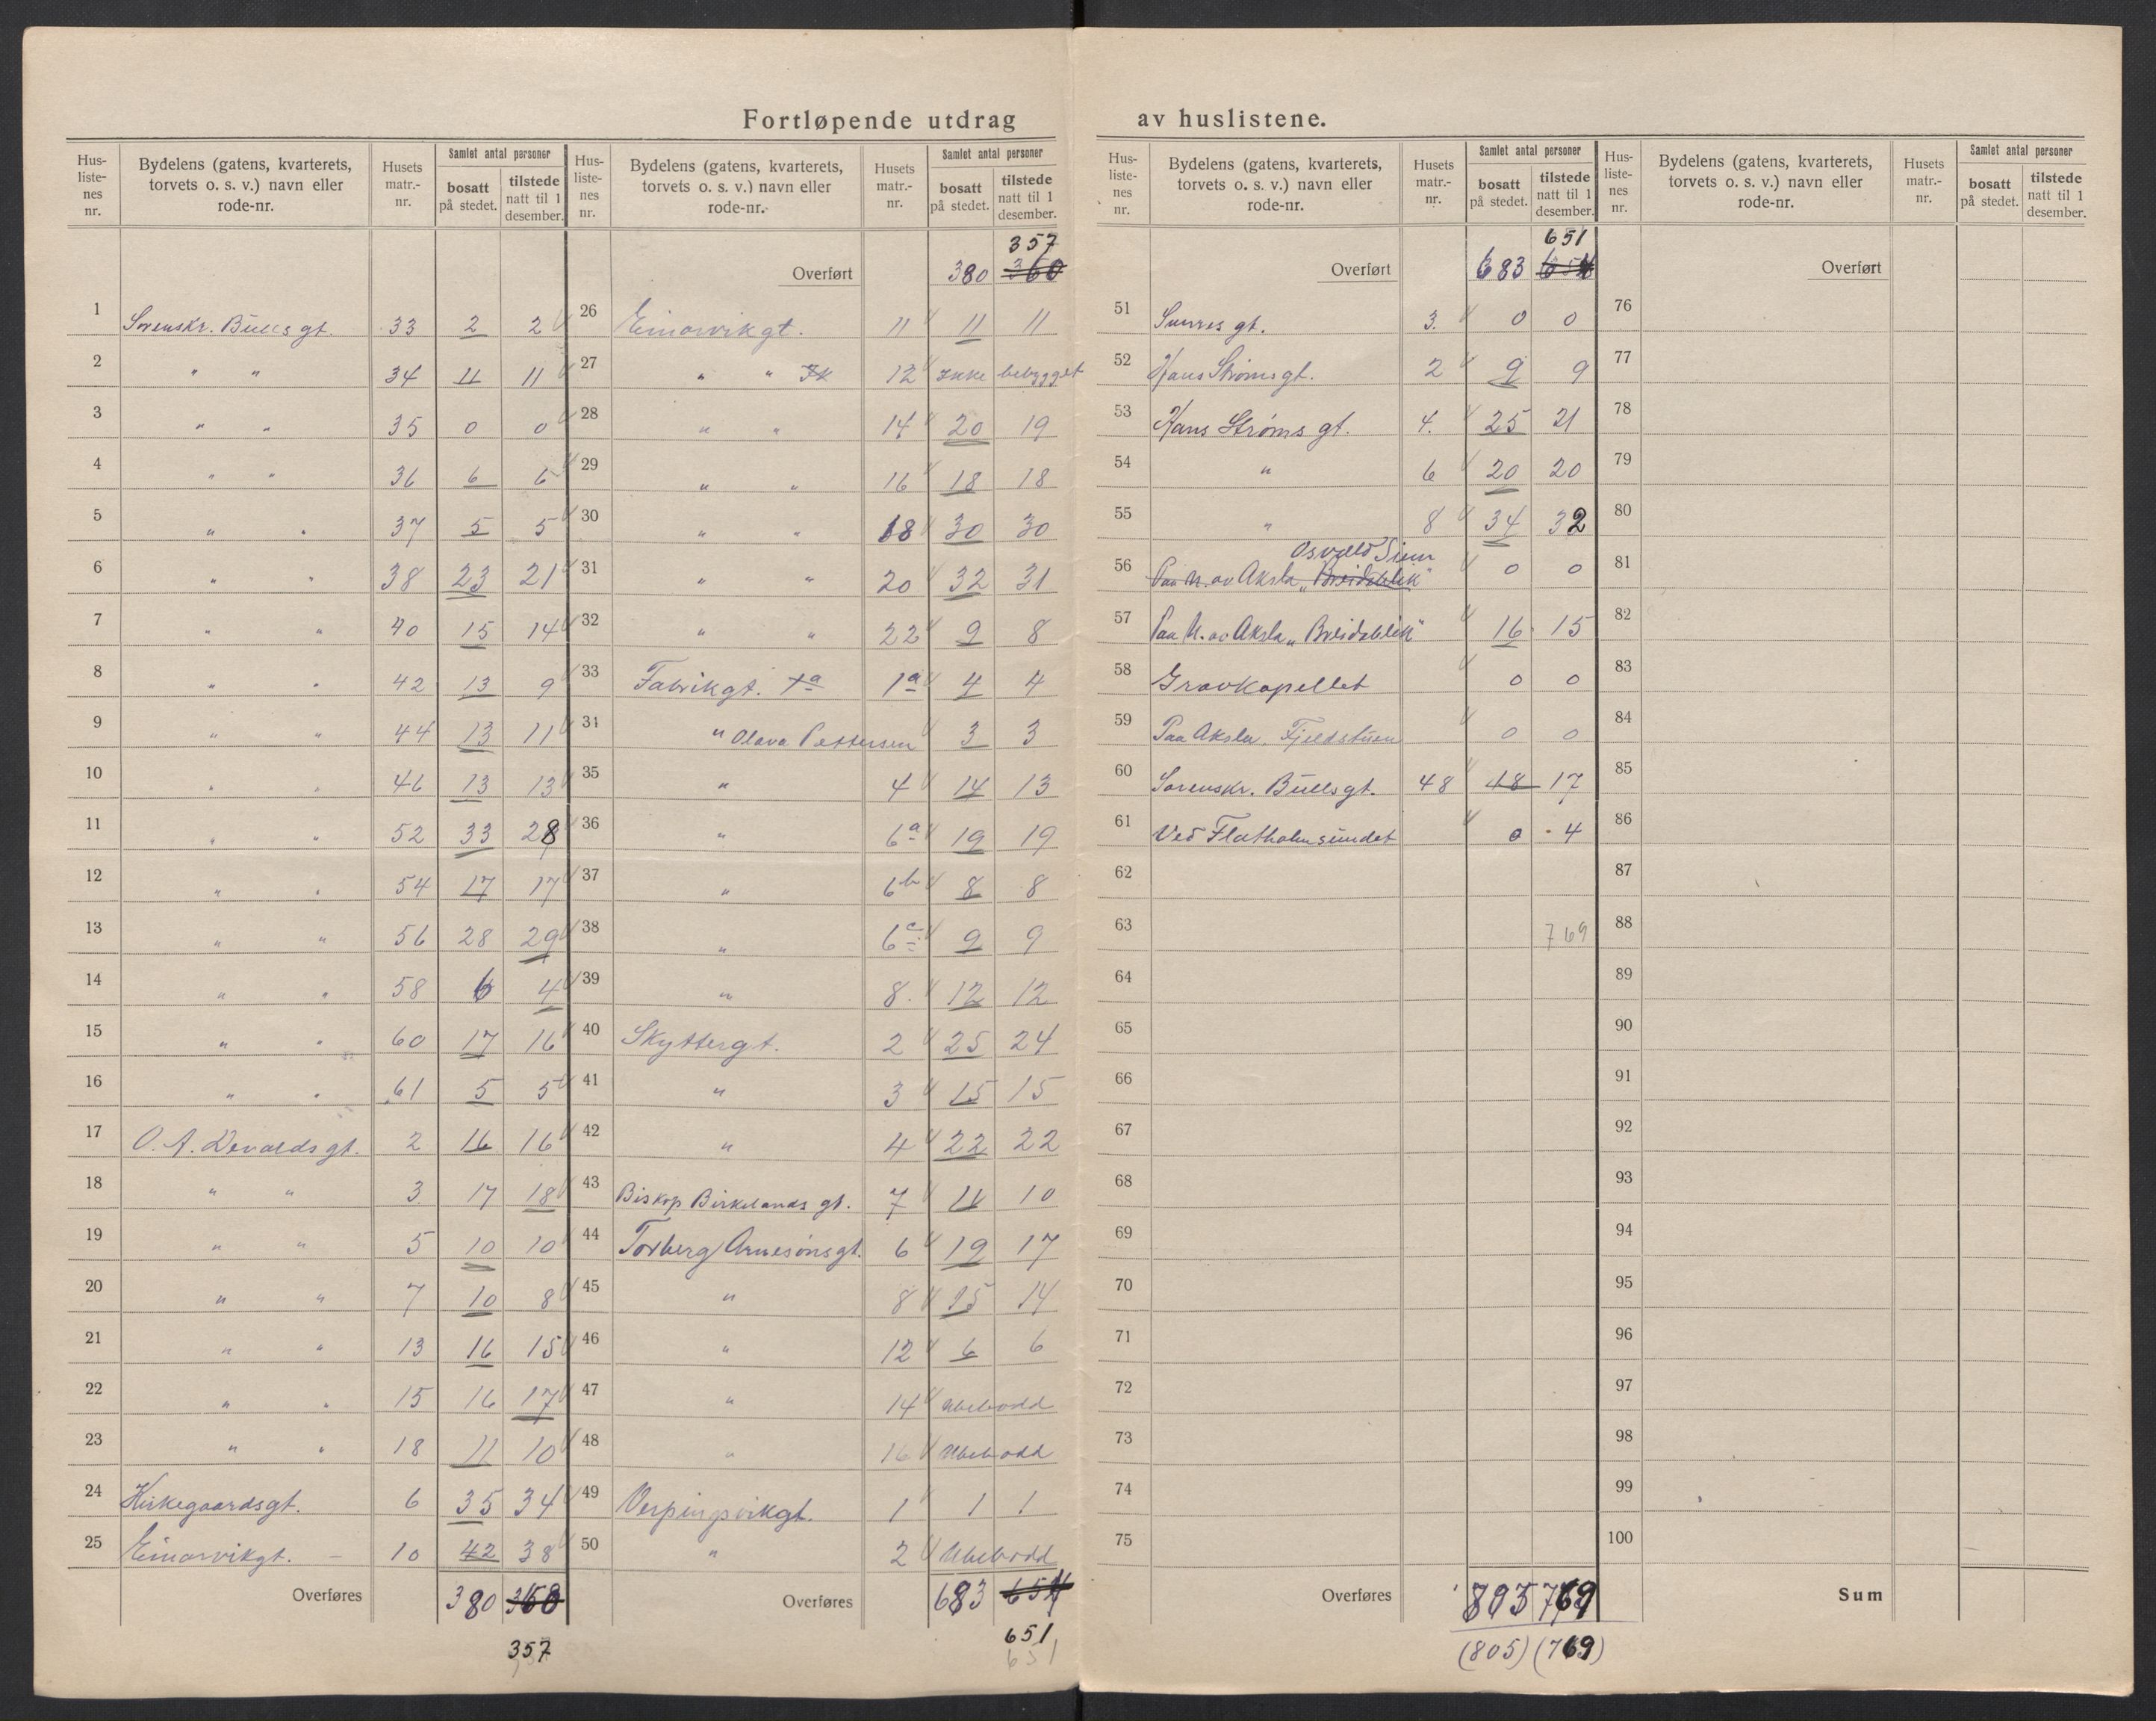 Fortløpende utdrag av huslistene.
Hus-listenes nr. | Bydelens (gatens, kvarterets, torvets o. s. v.) navn eller rode-nr. | Husets matr.-nr. | Samlet antal personer bosatt på stedet. | tilstede natt til 1 desember.
1 Sorenskr. Bulls gt. 33 2 2
2 " " 34 11 11
3 " " 35 0 0
4 " " 36 6 6
5 " " 37 5 5
6 " " 38 23 21
7 " " 40 15 14
8 " " 42 13 9
9 " " 44 13 11
10 " " 46 13 13
11 " " 52 33 28
12 " " 54 17 17
13 " " 56 28 29
14 " " 58 6 4
15 " " 60 17 16
16 " " 61 5 5
17 O. A. Devolds gt. 2 16 16
18 " " 3 17 18
19 " " 5 10 10
20 " " 7 10 8
21 " " 13 16 15
22 " " 15 16 17
23 " " 18 11 10
24 Kirkegaardsgt. 6 35 34
25 Einarvikgt. – 10 42 38
Overføres 380 360
357
Hus-listenes nr. | Bydelens (gatens, kvarterets, torvets o. s. v.) navn eller rode-nr. | Husets matr.-nr. | Samlet antal personer bosatt på stedet. | tilstede natt til 1 desember.
357
Overført 380 360
26 Einarvikgt. 11 11 11
27 " " Ik 12 Ikke bebygget
28 " " 14 20 19
29 " " 16 18 18
30 " " 18 30 30
31 " " 20 32 31
32 " " 22 9 8
33 Fabrikgt. 1a 1a 4 4
31 " Olava Pettersen 3 3
35 " 4 14 13
36 " 6a 19 19
37 " 6b 8 8
38 " 6c 9 9
39 " 8. 12 12
40 Skyttergt. 2 25 24
41 " 3 15 15
42 " 4 22 22
43 Biskop Birkelands gt. 7 11 10
44 Torberg Arnesøns gt. 6 19 17
45 " 8 15 14
46 " 12 6 6
47 " 14 Ubebodd
48 " 16 Ubebodd
49 Verpingsvikgt. 1 1 1
50 " 2 Ubebodd
Overføres 683 654
651
651
Hus-listenes nr. | Bydelens (gatens, kvarterets, torvets o. s. v.) navn eller rode-nr. | Husets matr.-nr. | Samlet antal personer bosatt på stedet. | tilstede natt til 1 desember.
651
Overført 683 654
51 gt. 3. 0 0
52 Hans Strøms gt. 2 9 9
53 Hans Strøms gt. 4. 25 21
54 " 6 20 20
55 " 8 34 32
Osvald
56 Paa N. av Aksla "Breidablik" 0 0
57 Paa N. av Aksla "Breidablik" 16 15
58 Gravkapellet 0 0
59 Paa Aksla. Fjeldstuen 0 0
60 Sorenskr. Bullsgt. 48 18 17
61 Ved Flatholmsundet 0 4
62
63 769
64
65
66
67
68
69
70
71
72
73
74
75
Overføres 805 769
(805) (769)
Hus-listenes nr. | Bydelens (gatens, kvarterets, torvets o. s. v.) navn eller rode-nr. | Husets matr.-nr. | Samlet antal personer bosatt på stedet. | tilstede natt til 1 desember.
Overført
76
77
78
79
80
81
82
83
84
85
86
87
88
89
90
91
92
93
94
95
96
97
98
99
100
Sum